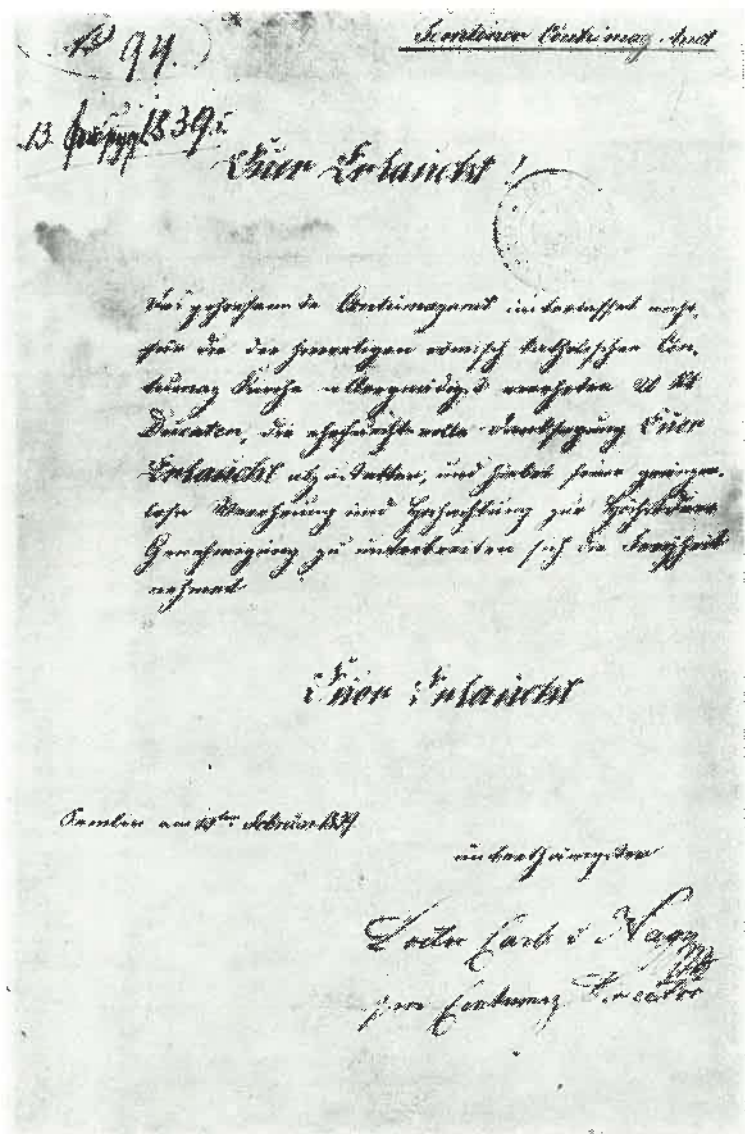 № 94.
Semliner Contumaz-Amt
13. 1839.
Euer Erlaucht!
Das gehorsamste Contumazamt unterlasset nicht,
für die der hierortigen römisch katholischen Con-
tumaz Kirche allergnädigst verehrten
Ducaten, die ehrfurchtsvolle Danksagung Euer
Erlaucht abzustatten, und hiebei seine
Verehrung und Hochachtung zur
Genehmigung zu unterbreiten sich die Freyheit
nehmend
Euer Erlaucht
Semlin am ten Februar 1839
unterthänigster
Doctor Carl v Nagy
Contumaz Director